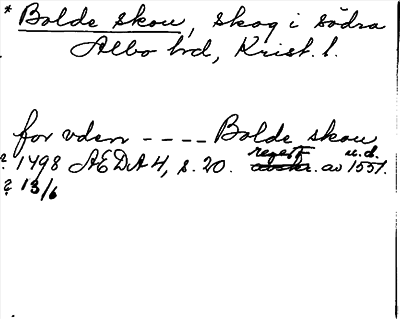 * Bolde skou, skog i södra
Albo hd, Krist. l.
for vden ---- Bolde skou
? 1498 ÆDA 4, s. 20. regest u.d.
avskr. av 1551.
? 13/6